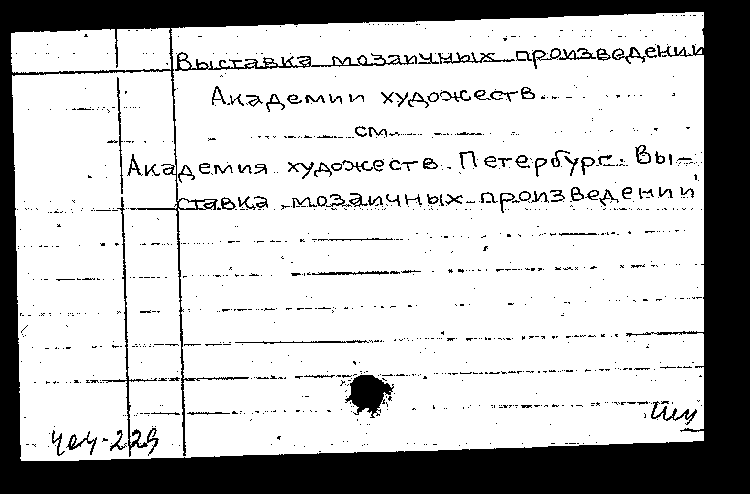 Выставка мозаичных произведений
Академии художеств.
см.
Академия художеств. Петербург. Вы-
ставка мозаичных произведений